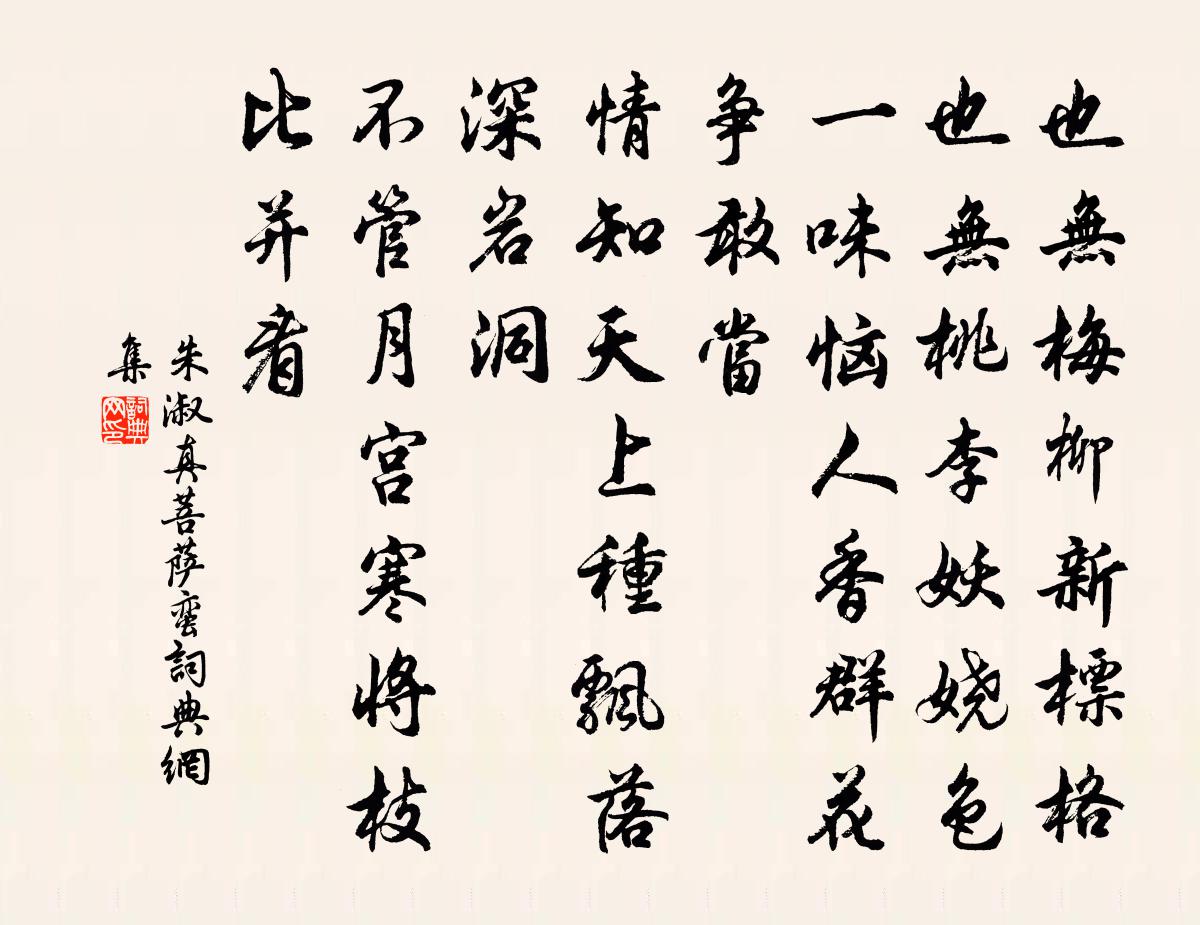 也無梅柳新標格
也無桃李妖娆色
一味恼人香群花
争敢當
情知天上種飄落
深岩洞
不管月宫寒将枝
比并看
朱淑真菩萨蛮詞典網
集
詞典
网印